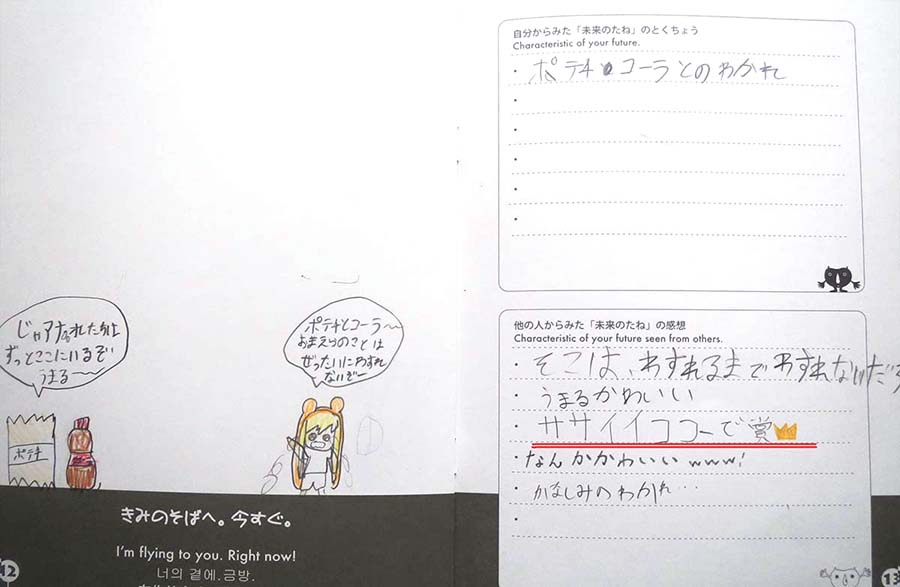 じゃアナ おれたちは
ずっとここにいるぞ
うまる〜
ポテチとコーラ〜
おまえらのことは
ぜったいにわすれ
ないぞー
ポテチ
きみのそばへ。今すぐ。
I'm flying to you. Right now!
너의 곁에.금방.
12
自分からみた「未来のたね」のとくちょう
Characteristic of your future.
・ポテチとコーラとのわかれ
他の人からみた「未来のたね」の感想
Characteristic of your future seen from others.
・そこは、わすれるまでわすれないだろ
・うまるかわいい
・ササイイココーで賞
・なんかかわいいwww!
・かなしみのわかれ…
13